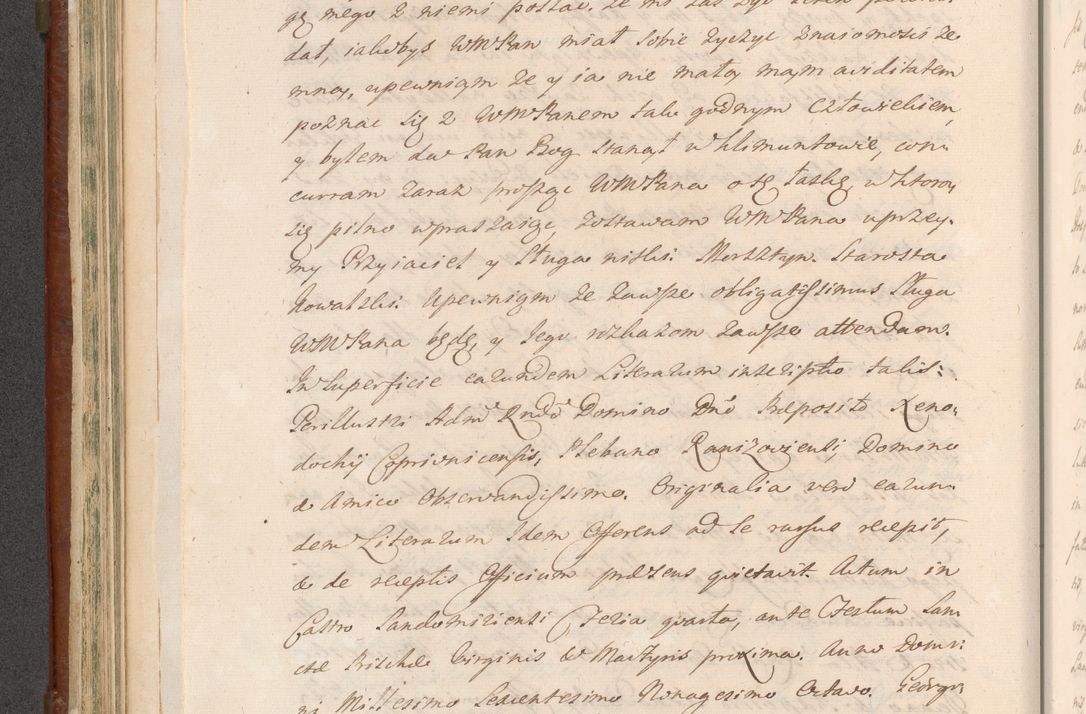 gę mego z niemi
dał, iakobyś WMPan miał sobie zyczyc znaiomosci ze
mną, upewniam ze y ia nie małą mam aviditatem
poznac się z WMPanem tak godnym człowiekiem,
y byłem da Pan Bog stanął w Klimuntowie, con-
curram zaraz prosząc WMPana o tę łaskę, w ktorą
się pilno wpraszaiąc zostawam WMPana uprzey-
my Przyiaciel y sługa niski Morsztyn Starosta
Kowalski: Upewniam ze zawsze obligatissimus sługa
WMPana będę, y Jego rozkazom zawsze attendam.
In superficie earundem Literarum inscriptio talis:
Perillustri Admd Rndo Domino Dno Præposito Xeno-
dochij Coprivnicensis, Plebano Ranizoviensi, Domino
& Amico Observandissimo. Originalia vero earun-
dem Literarum Idem Offerens ad se rursus recepit,
& de receptis Officium præsens quietavit. Actum in
Castro Sandomiriensi Feria quarta, ante Festum San-
ctæ Priscæ Virginis & Martyris proxima. Anno Domi-
ni Millesimo Sexcentesimo Nonagesimo Octavo. Georgi